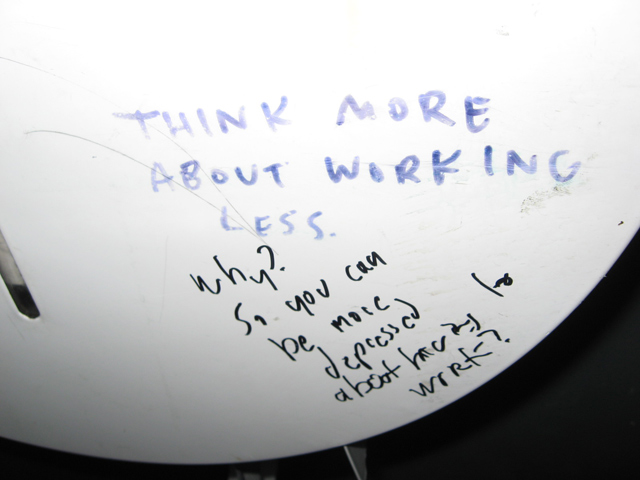 THINK MORE
ABOUT WORKING
LESS.
Why?
So you can
be more
depressed
about having to
work?